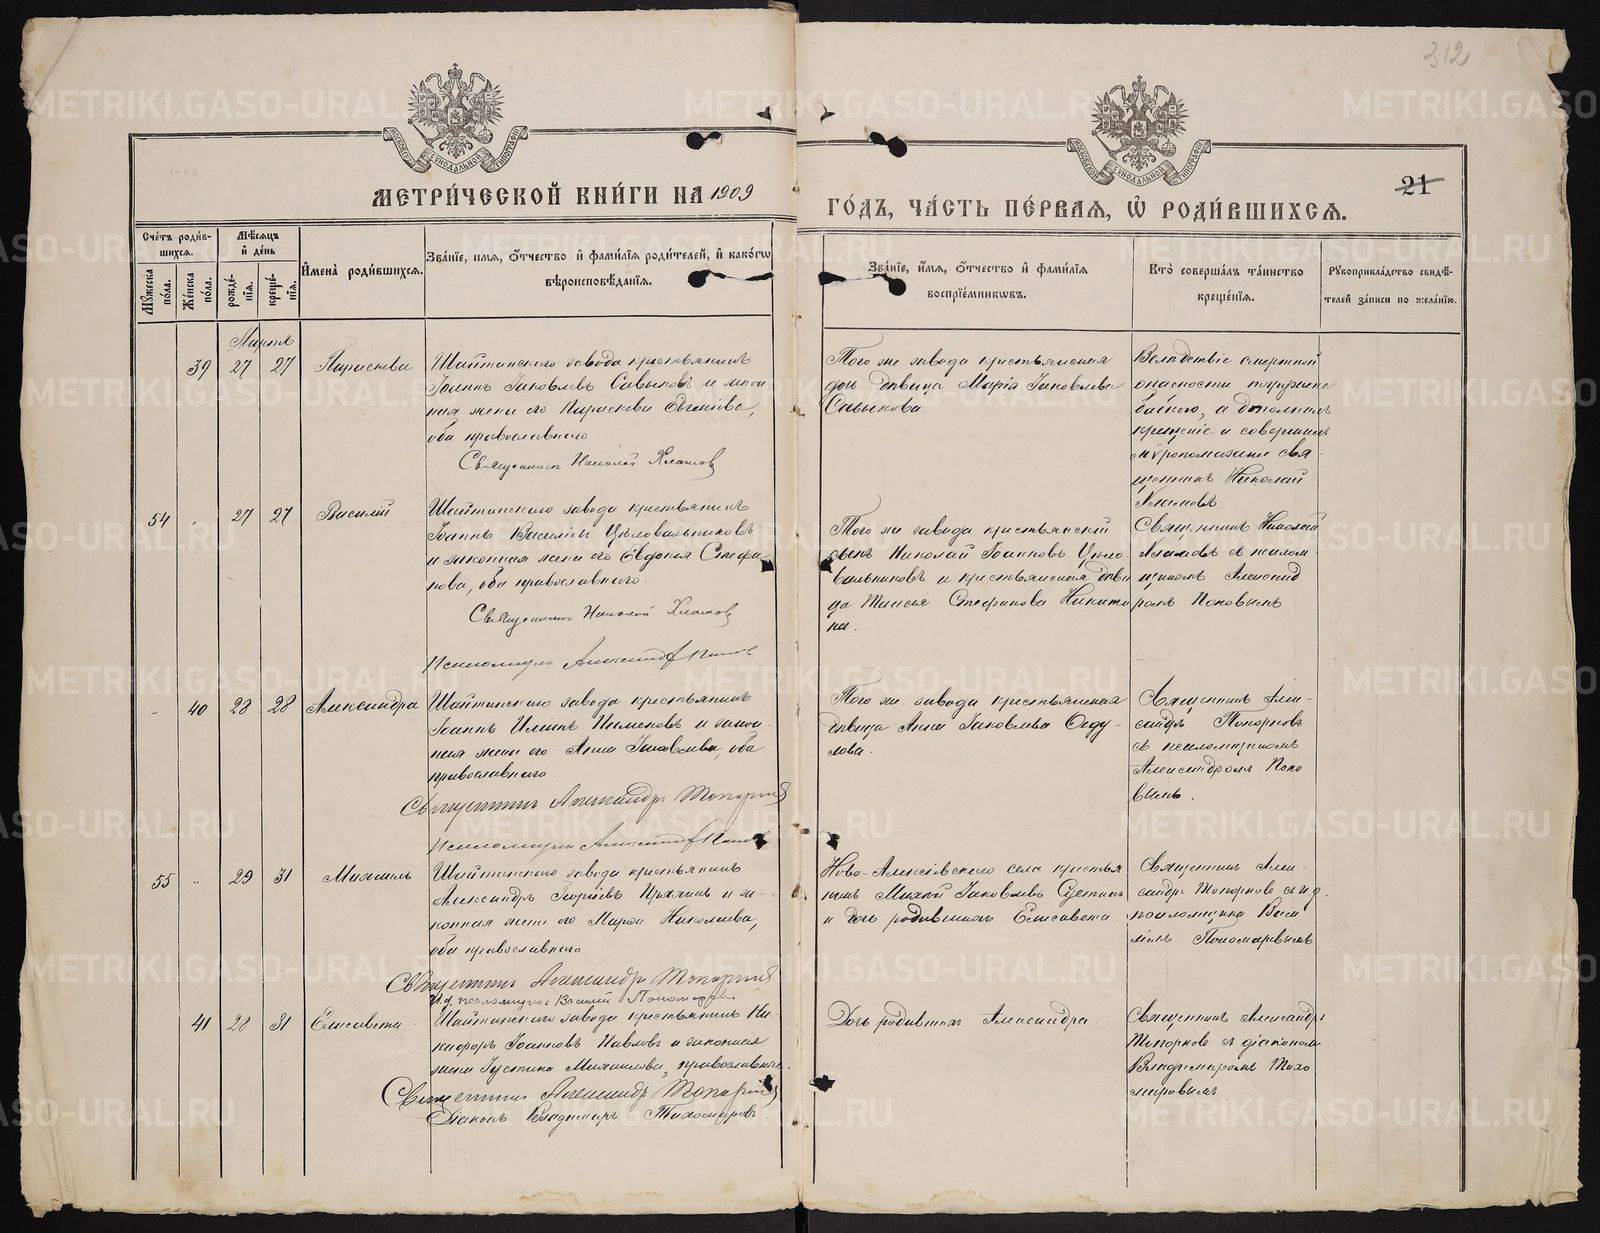 312
МЕТРИ́ЧЕСКОЙ КНИ́ГИ НА 1909
ГО́ДЪ, ЧА́СТЬ ПЕ́РВАЯ, Ѡ҆ РОДИ́ВШИХСЯ.
21
Сче́тъ роди́в-
шихся.
Мѹ́жеска по́ла.
Же́нска по́ла.
Мѣ́сяцъ
и҆ де́нь
рожде́-
нія.
креще́-
нія.
И҆мена̀ роди́вшихся.
Зва́ніе, и́мя, о҆́тчество и҆ фами́лія роди́телей, и҆ како́гѡ
вѣроисповѣ́данія.
Зва́ніе, и́мя, о҆́тчество и҆ фами́лія
воспріе́мникѡвъ.
Кто̀ соверша́лъ та́инство
креще́нія.
Рѹкоприкла́дство свидѣ́-
телей за́писи по жела́нію.
Мартъ
39 27 27 Параскева
Шайтанского завода крестьянинъ
Іоаннъ Іаковлевъ Савыковъ и закон
ная жена его Параскева
оба православного
Священникъ Николай Хламов
Того же завода крестьянская
дѣвица Марія Іаковлева
Савыкова.
Вследствіе смертной
опасности погружена
бабкою, а дополнилъ
крещеніе и совершилъ
мѵропомазание свя-
щенникъ Николай
Хламовъ
54 27 27 Василій
Шайтанского завода крестьянинъ
Іоаннъ Василіевъ Цѣловальниковъ
и законная жена его Евдокія Стефа-
нова, оба православного.
Священник Николай Хламов
Псаломщик Александр Попов
Того же завода крестьянскій
сынъ Николай Іоанновъ Цѣло-
вальниковъ и крестьянская дѣви
ца Таисія Стефанова Никити
на.
Священникъ Николай
Хламовъ съ псалом
щикомъ Александ
ромъ Поповымъ
40 28 28 Александра
Шайтанского завода крестьянинъ
Іоаннъ и закон-
ная жена его Анна Іаковлева, оба
православного
Священник Александр Топорков
Псаломщик Александр Попов
Того же завода крестьянская
дѣвица Анна Іаковлева
Священникъ Алек-
сандръ Топорковъ
съ псаломщикомъ
Александромъ Попо
вымъ.
55 29 31 Михаилъ
Шайтанского завода крестьянинъ
Александръ и за-
конная жена его Марѳа Николаева,
оба православного
Священник Александр Топорков
И.д. псаломщика Василий Пономарев
Ново-Алексѣевского села крестья
нинъ Іаковлевъ
и дочь родившихъ Елисавета.
Священникъ Алек-
сандръ Топорковъ съ и.д.
псаломщика Васи
ліемъ Пономаревымъ
41 28 31 Елисавета
Шайтанского завода крестьянинъ Ни-
кифоръ Іоанновъ Павловъ и законная
жена Іустина Михаилова, православного.
Священник Александр Топорков
Діаконъ Владимиръ Тихомировъ
Дочь родившихъ Александра.
Священникъ Александръ
Топорковъ съ діакономъ
Владимиромъ Тихо
мировымъ
METRIKI.GASO-URAL.RU